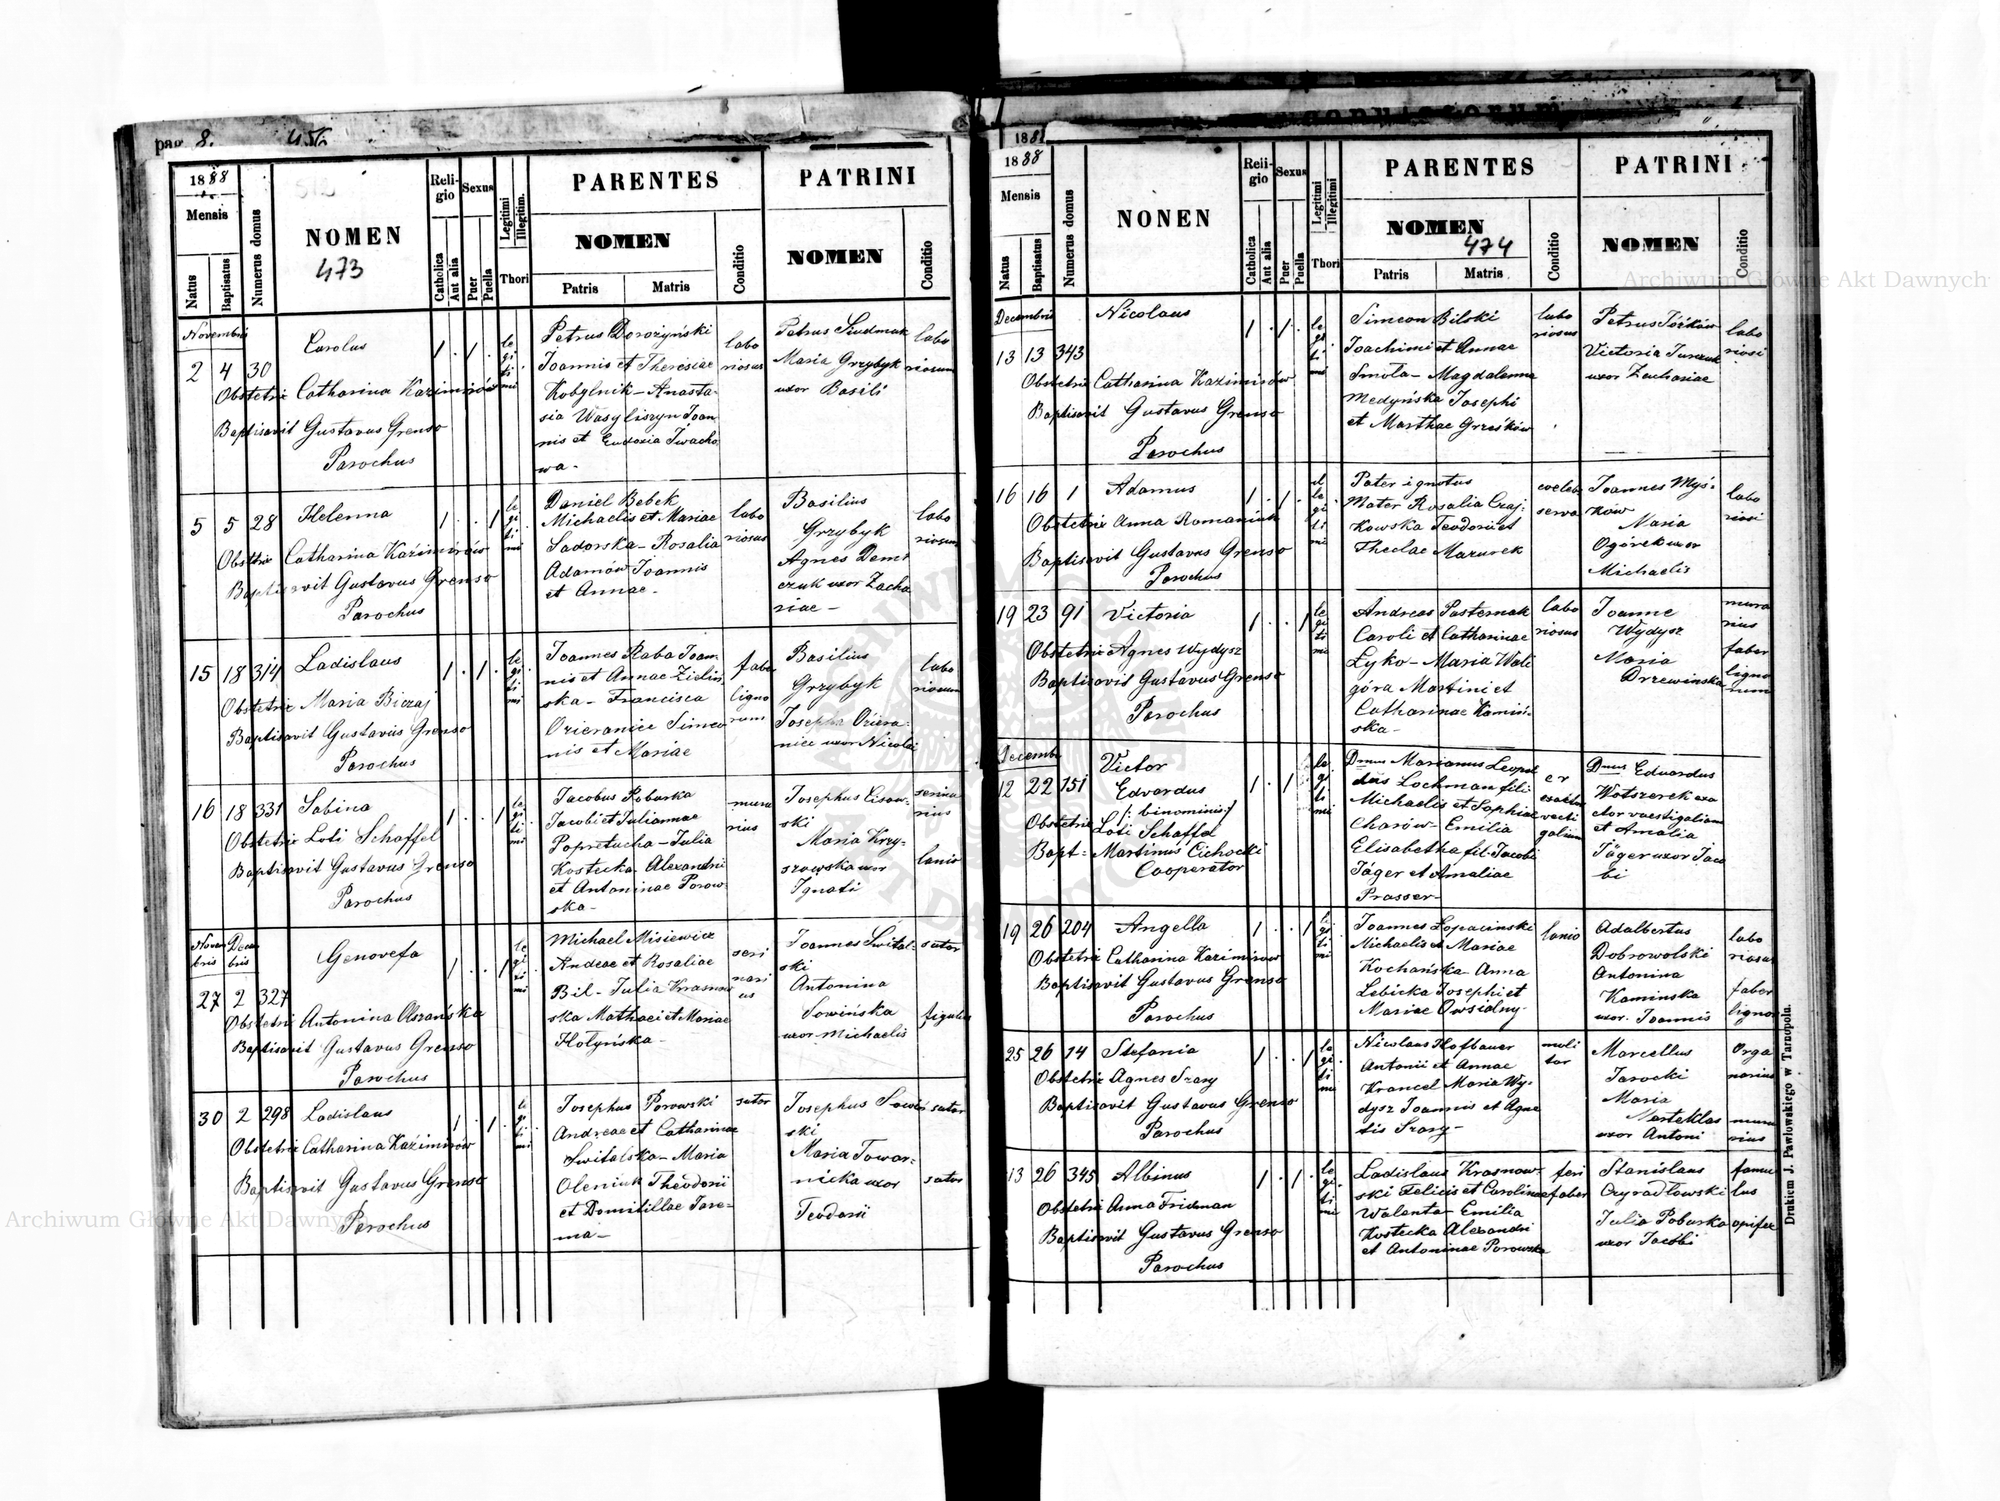 pag 8. 456
1888
Mensis
Natus
Baptisatus
Numerus domus
NOMEN
473
Religio
Catholica
Aut alia
Sexus
Puer
Puella
Legitimi
Illegitim.
Thori
PARENTES
NOMEN
Patris
Matris
Conditio
PATRINI
NOMEN
Conditio
Novembris
2 4 30
Carolus
Obstetrix Catharina Kazimirów
Baptisavit Gustavus Grenso
Parochus
1 . 1 .
legitimi
Petrus Dorożyński
Joannis et Theresiae
Kobylnik - Anasta-
sia Wasyliszyn Joan
nis et Eudoxia Iwacho
wa -
laboriosus
Petrus Szudmak
Maria Grzybyk
uxor Basili
laboriosum
5 5 28
Helenna
Obstetrix Catharina Kazimirów
Baptisavit Gustavus Grenso
Parochus
1 . . 1
legitimi
Daniel Bebek
Michaelis et Mariae
Sadorska - Rosalia
Adamów Joannis
et Annae -
laboriosus
Basilius
Grzybyk
Agnes Demt
czuk uxor Zacha
riae -
laboriosum
15 18 314
Ladislaus
Obstetrix Maria Biczaj
Baptisavit Gustavus Grenso
Parochus
1 . 1 .
legitimi
Joannes Raba Joan
nis et Annae Zielin
ska - Francisca
Ozieranice Simeo
nis et Mariae
faber
lignorum
Basilius
Grzybyk
Josepha Oziera-
nice uxor Nicolai
laboriosum
16 18 331
Sabina
Obstetrix Loti Schaffel
Baptisavit Gustavus Grenso
Parochus
1 . . 1
legitimi
Jacobus Poburka
Jacobi et Juliannae
Popretucha - Julia
Kostecka Alexandri
et Antoninae Porow
ska -
murarius
Josephus Lisow-
ski
Maria Krzy-
szowska uxor
Ignati
serinarius
lanio
Novembris Decembris
27 2 327
Genovefa
Obstetrix Antonina Olszańska
Baptisavit Gustavus Grenso
Parochus
1 . . 1
legitimi
Michael Misiewicz
Andreae et Rosaliae
Bil - Julia Krasnow
ska Mathaei et Mariae
Hołyńska -
serinarius
Joannes Śwital-
ski
Antonina
Sowińska
uxor Michaelis
sutor
figulus
30 2 298
Ladislaus
Obstetrix Catharina Kazimirów
Baptisavit Gustavus Grenso
Parochus
1 . 1 .
legitimi
Josephus Porowski
Andreae et Catharinae
Switalska - Maria
Oleniuk Theodorii
et Domitillae Jare-
ma -
sutor
Josephus Sowiń
ski
Maria Towar-
nicka uxor
Teodorii
sutor
sutor
1888
1888
Mensis
Natus
Baptisatus
Numerus domus
NONEN
Religio
Catholica
Aut alia
Sexus
Puer
Puella
Legitimi
Illegitimi
Thori
PARENTES
NOMEN
474
Patris
Matris
Conditio
PATRINI
NOMEN
Conditio
Decembris
13 13 343
Nicolaus
Obstetrix Catharina Kazimirów
Baptisavit Gustavus Grenso
Parochus
1 . 1 .
legitimi
Simeon Bilski
Joachimi et Annae
Smola - Magdalenna
Medyńska Josephi
et Marthae Grześków
laboriosus
Petrus Jóźków
Victoria Turczuk
uxor Zachariae
laboriosi
16 16 1
Adamus
Obstetrix Anna Romaniuk
Baptisavit Gustavus Grenso
Parochus
1 . 1 .
illegitimi
Pater ignotus
Mater Rosalia Czaj-
kowska Teodorii et
Theclae Mazurek
coelebs
serva
Joannes Myś-
ków
Maria
Ogórek uxor
Michaelis
laboriosi
19 23 91
Victoria
Obstetrix Agnes Wydysz
Baptisavit Gustavus Grenso
Parochus
1 . . 1
legitimi
Andreas Pasternak
Caroli et Catharinae
Łyko - Maria Wali
góra Martini et
Catharinae Kamiń-
ska -
laboriosus
Joanne
Wydysz
Maria
Drzewinska
murarius
faber
lignorum
Decemb
12 22 151
Victor
Edvardus
/: binominis :/
Obstetrix Loti Schaffel
Bapt- Martinus Cichocki
Cooperator
1 . 1
legitimi
Dmus Marianus Leopol
dus Lochman fili
Michaelis et Sophiae
Charów - Emilia
Elisabetha fil. Jacobi
Jäger et Amaliae
Prasser -
Dmus Eduardus
Watszerek exa
ctor vaestigalium
et Amalia
Jäger uxor Jaco
bi
19 26 204
Angella
Obstetrix Catharina Kazimirów
Baptisavit Gustavus Grenso
Parochus
1 . . 1
legitimi
Joannes Łopacinski
Michaelis et Mariae
Kochańska - Anna
Lebicka Josephi et
Mariae Owsidny -
lanio
Adalbertus
Dobrowolski
Antonina
Kaminska
uxor. Joannis
laboriosus
faber
lignor
25 26 14
Stefania
Obstetrix Agnes Szary
Baptisavit Gustavus Grenso
Parochus
1 . . 1
legitimi
Nicolaus Hofbauer
Antonii et Annae
Krancel Maria Wy-
dysz Joannis et Agne
tis Szary -
molitor
Marcellus
Jarocki
Maria
Marteklas
uxor Antoni
Organarius
murarius
13 26 345
Albinus
Obstetrix Anna Fridman
Baptisavit Gustavus Grenso
Parochus
1 . 1 .
legitimi
Ladislaus Krasnow-
ski Felicis et Carolinae
Walenta - Emilia
Kostecka Alexandri
et Antoninae Porowska
ferifaber
Stanislaus
Ozyradłowski
Julia Poburka
uxor Jacobi
famulus
opifex
Drukiem J. Pawlowskiego w Tarnopolu.
Archiwum Główne Akt Dawnych
Archiwum Główne Akt Dawnych